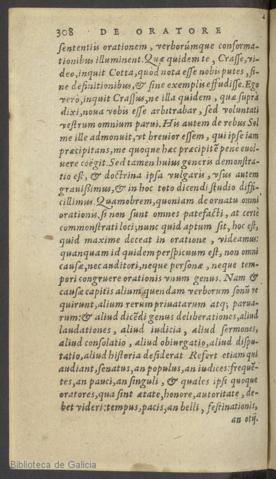 308 DE ORATORE
sententiis orationem, verborúmque conforma-
tionibus illuminent. Quæ quidem te, Crasse, vi-
deo, inquit Cotta, quod nota esse nobis putes, si-
ne definitionibus, & sine exemplis effudisse. Ego
verò, inquit Crassus, ne illa quidem, quæ suprà
dixi, noua vobis esse arbitrabar, sed voluntati
vestrum omnium parui. His autem de rebus Sol
me ille admonuit, vt breuior essem, qui ipse iam
præcipitans, me quoque hæc præcipitē pene euol-
uere coëgit. Sed tamen huius generis demonstra-
tio est, & doctrina ipsa vulgaris, vsus autem
grauissimus, & in hoc toto dicendi studio diffi-
cillimus. Quamobrem, quoniam de ornatu omni
orationis, si non sunt omnes patefacti, at certè
commonstrati loci, nunc quid aptum sit, hoc est,
quid maxime deceat in oratione, videamus:
quanquam id quidem perspicuum est, non omni
causæ, nec auditori, neque personæ, neque tem-
pori congruere orationis vnum genus. Nam &
causæ capitis alium quendam verborum sonū re
quirunt, alium rerum priuatarum atq; parua-
rum: & aliud dicēdi genus deliberationes, aliud
laudationes, aliud iudicia, aliud sermones,
aliud consolatio, aliud obiurgatio, aliud dispu-
tatio, aliud historia desiderat Refert etiam qui
audiant, senatus, an populus, an iudices: frequē-
tes, an pauci, an singuli, & quales ipsi quoque
oratores, qua sint ætate, honore, autoritate, de-
bet videri: tempus, pacis, an belli, festinationis,
an otij.
Biblioteca de Galicia